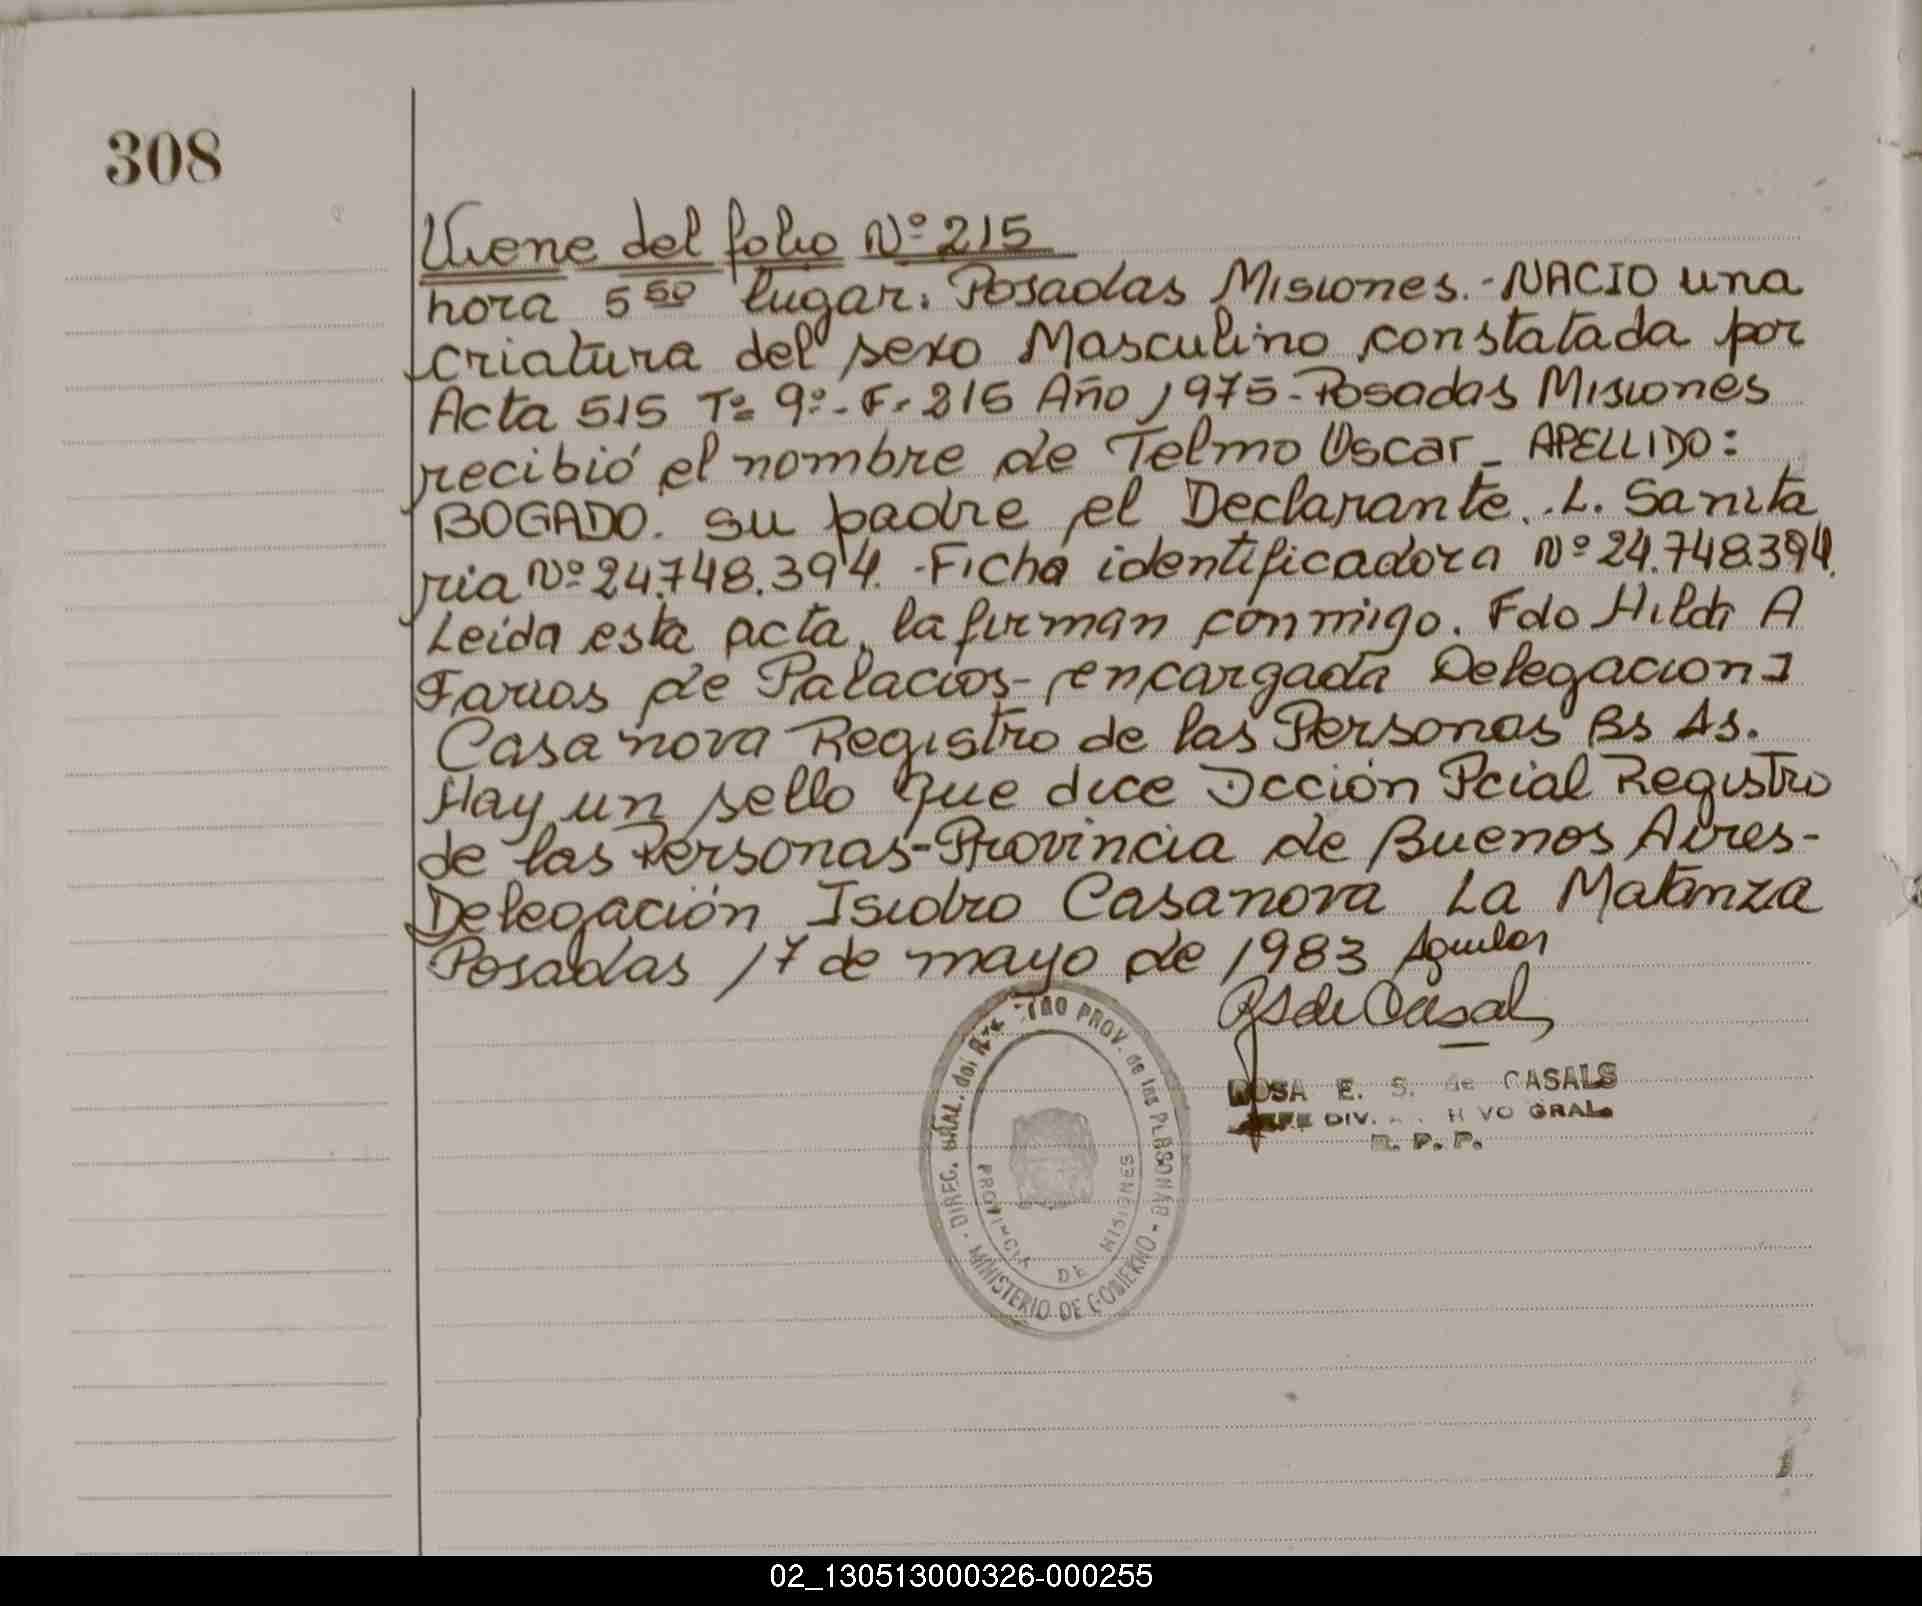 308
Viene del folio Nº 215
hora 5 50 lugar: Posadas Misiones.- NACIO una
criatura del sexo Masculino constatada por
Acta 515 Tº 9º - Fº 215 Año 1975 - Posadas Misiones
recibió el nombre de Telmo Oscar - APELLIDO:
BOGADO. su padre el Declarante. L. Sanita
ria Nº 24.748.394. - Ficha identificadora Nº 24.748.394.
Leida esta acta, la firman conmigo. Fdo Hilda A
Farios de Palacios - encargada Delegacion I
Casanova Registro de las Personas Bs As.
Hay un sello que dice Dcción Pcial Registro
de las Personas - Provincia de Buenos Aires -
Delegación Isidro Casanova La Matanza
Posadas 17 de mayo de 1983 Aguilar
RS de Casals
ROSA E. S. de CASALS
JEFE DIV. VO GRAL.
R. P. P.
DIREC. GRAL. del PROV. de las PERSONAS - MINISTERIO DE GOBIERNO
PROVINCIA DE MISIONES
02_130513000326-000255